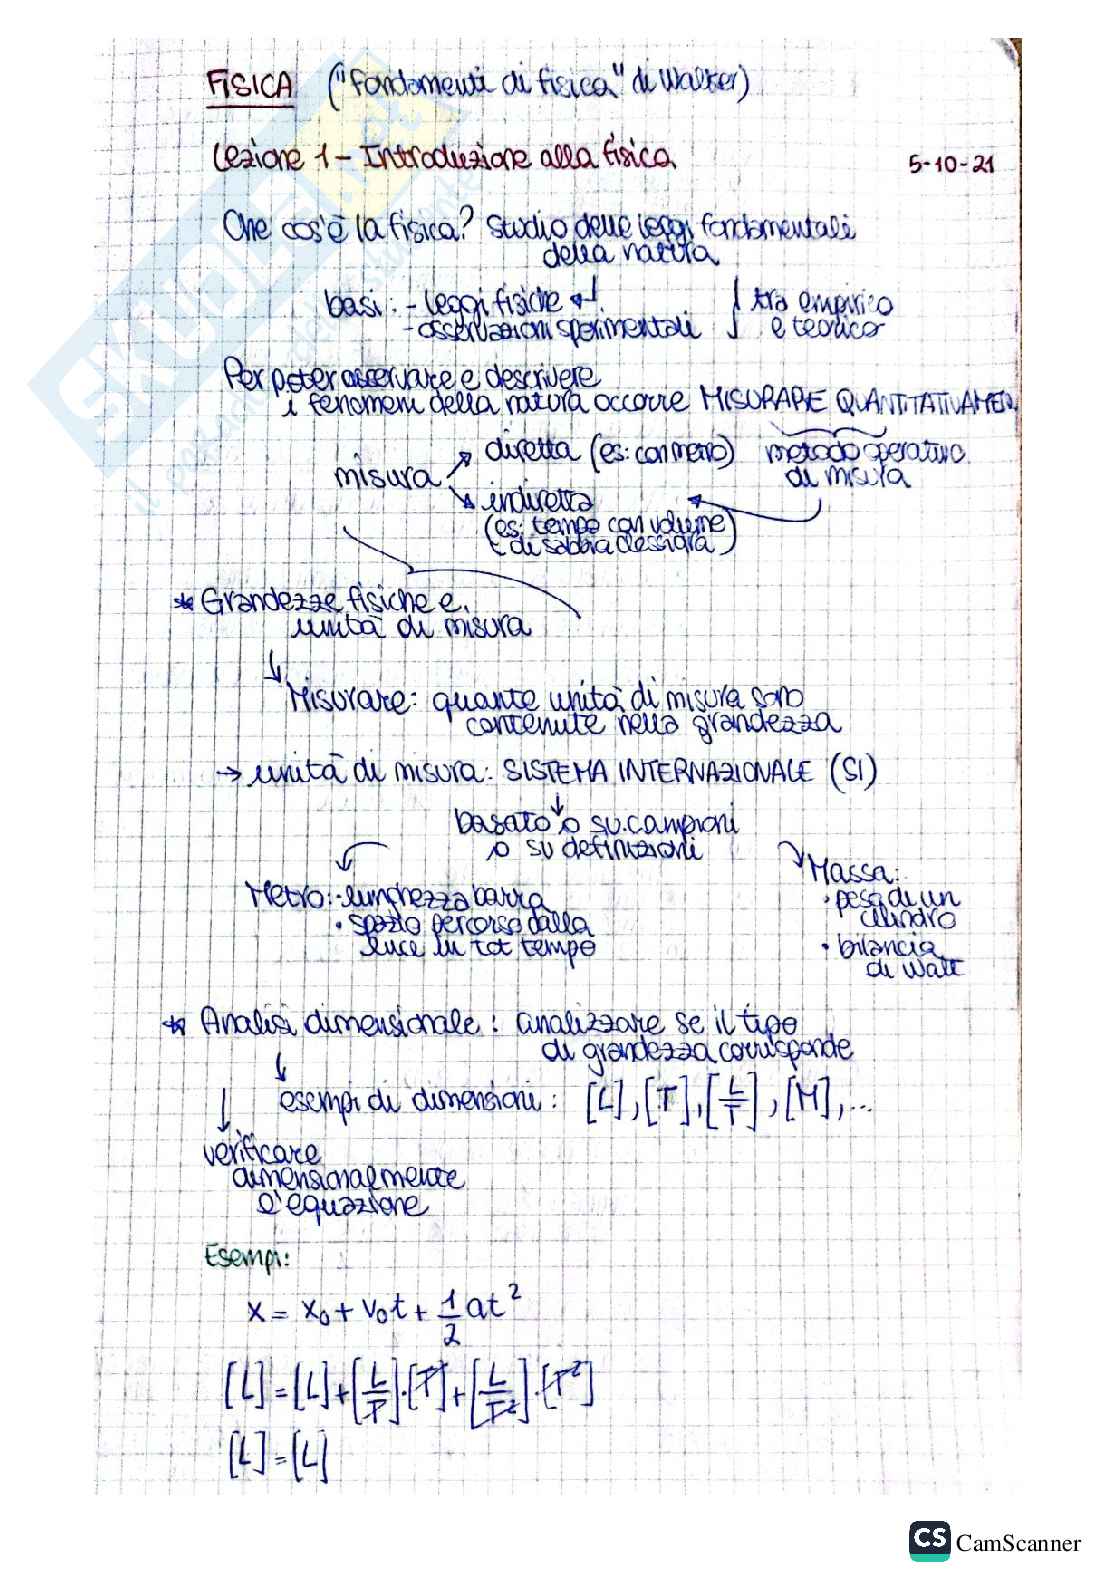 FISICA ("Fondamenti di fisica" di Walker)
Lezione 1 - Introduzione alla fisica 5-10-21
Che cos'è la fisica? Studio delle leggi fondamentali
della natura
basi: - leggi fisiche
- osservazioni sperimentali
tra empirico
e teorico
Per poter osservare e descrivere
i fenomeni della natura occorre MISURARE QUANTITATIVAMEN
misura
diretta (es: con metro)
indiretta
(es: tempo con volume
di sabbia clessidra)
metodo operativo
di misura
* Grandezze fisiche e
unità di misura
Misurare: quante unità di misura sono
contenute nella grandezza
→ unità di misura: SISTEMA INTERNAZIONALE (SI)
basato o su campioni
o su definizioni
Metro: · lunghezza barra
· spazio percorso dalla
luce in tot tempo
Massa:
· peso di un
cilindro
· bilancia
di Watt
* Analisi dimensionale: analizzare se il tipo
di grandezza corrisponde
esempi di dimensioni: [L], [T], [L/T], [M], ...
verificare
dimensionalmente
l'equazione
Esempi:
x = x₀ + v₀t + 1/2 at²
[L] = [L] + [L/T] · [T] + [L/T²] · [T²]
[L] = [L]
SKUOLA.net
il paradiso dello studente
CS CamScanner